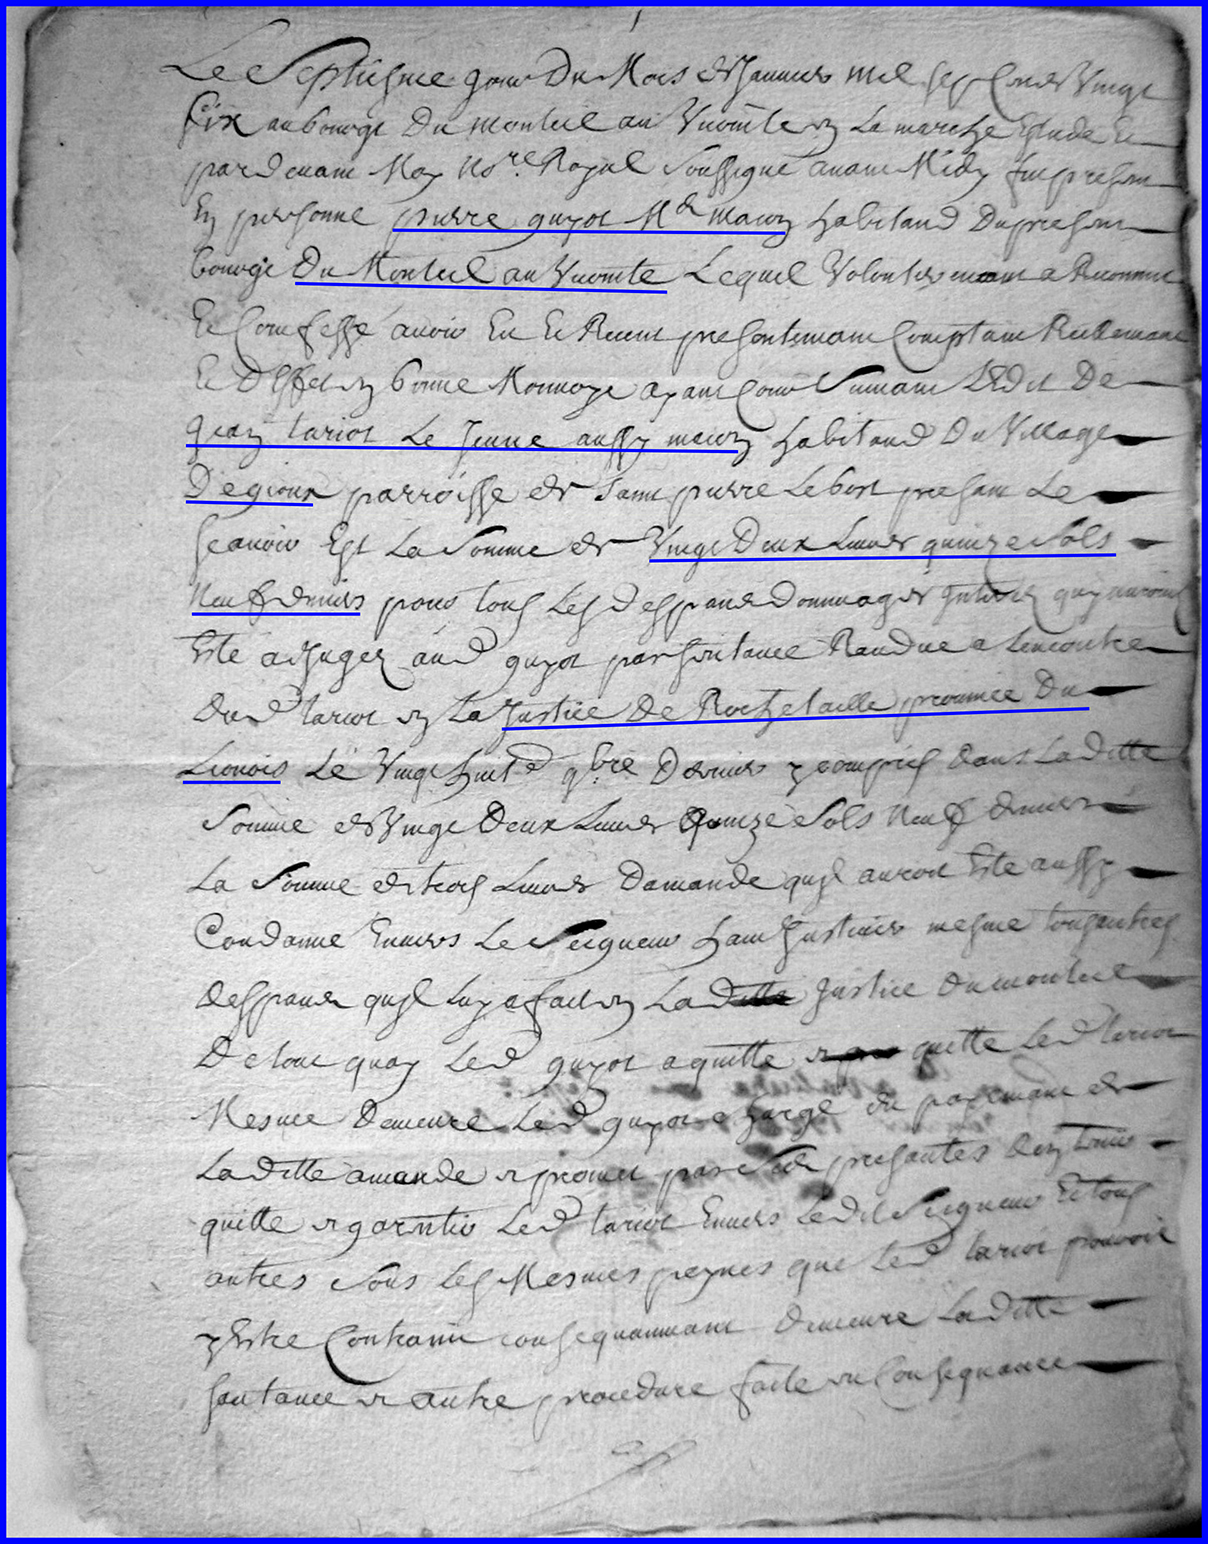 Le Septiesme jour Du Mois de Janvier mil sept Cents Vingt
six au bourgt Du monteil au Vicomte en La marche Estude Et
par devant Moy No.re Royal soussigné avant Midy fut presant
En personne pierre guyot M.d macon habitand Du presant
bourgt Du Monteil au Vicomte Lequel Volontairemant a Reconnut
Et Confessé avoir Eu Et Receut presentemant Comptant Reellemant
Et D'Effet en bonne Monnoye ayant Cour Suivant L'Edit De
Jean tariot Le Jeune aussy macon habitand Du Village
D'egioux parroisse de Saint pierre Lebost presant Le
scavoir Est La Somme de Vingt Deux Livres quinze Sols
Neuf deniers pour tous Les despans Dommages Interets quy auroient
Esté adjugez aud guyot par santance Randue a Lencontre
Dud tariot en La Justice De Rochetaille province Du
Lionois Le Vingt huit.e 9bre Dernier y compris dans La ditte
Somme de Vingt Deux Livres Quinze Sols Neuf deniers
La Somme de trois Livres Damande qu'il auroit Esté aussy
Condanné Envers Le Seigneur haut Justicier mesme tous autres
despans qu'il Luy a fait en La Ditte Justice Du monteil
De tout quoy Led guyot a quitte et quitte Led tariot
Mesme Demeure Led guyot charge du payemant de
La ditte amande et promet par Ces presantes D'en tenir
quitte et garantir Led tariot Envers Ledit Seigneur Et tous
autres Sous Les Mesmes peynes que Led tariot pouvoit
y Estre Contraint consequammant demeure La ditte
santance et autre procedure faite en Consequance